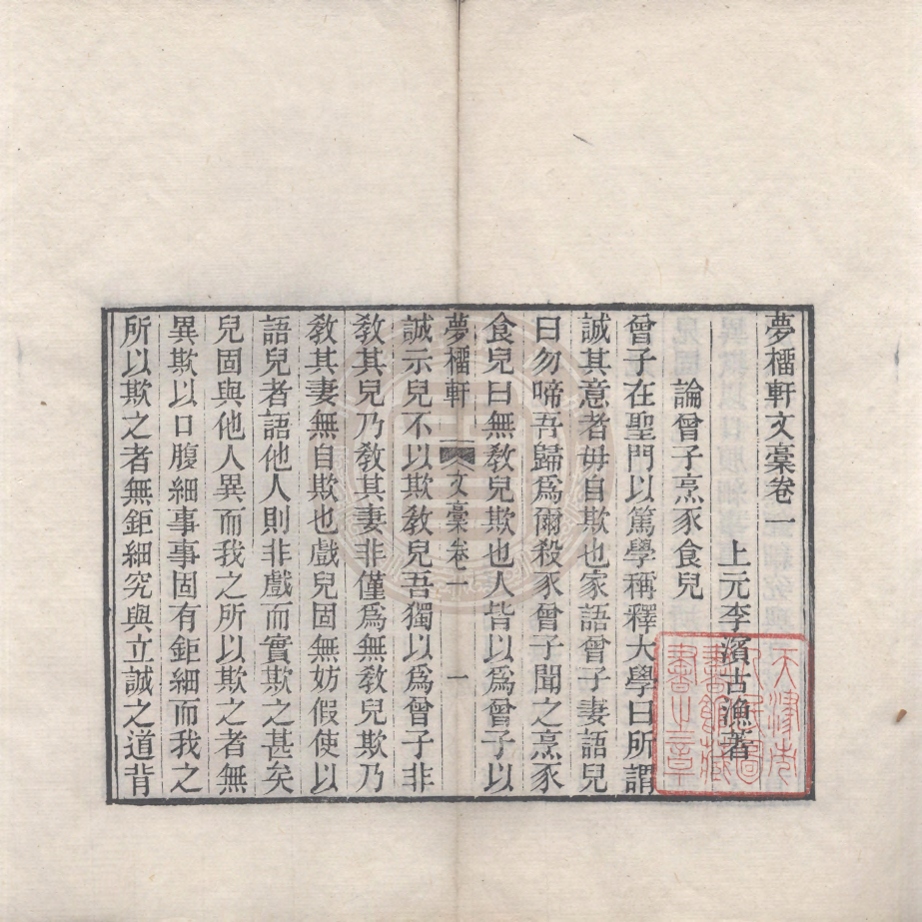 夢橊軒文稾卷一
上元李濱古漁著
論曾子烹豕食兒
曾子在聖門以篤學稱釋大學曰所謂
誠其意者毋自欺也家語曾子妻語兒
曰勿啼吾歸爲爾殺豕曾子聞之烹豕
食兒曰無教兒欺也人皆以爲曾子以
夢橊軒 文稾卷一 一
誠示兒不以欺教兒吾獨以爲曾子非
教其兒乃教其妻非僅爲無教兒欺乃
教其妻無自欺也戲兒固無妨假使以
語兒者語他人則非戲而實欺之甚矣
兒固與他人異而我之所以欺之者無
異欺以口腹細事事固有鉅細而我之
所以欺之者無鉅細究與立誠之道背
天津市
人民圖
書館藏
書之章